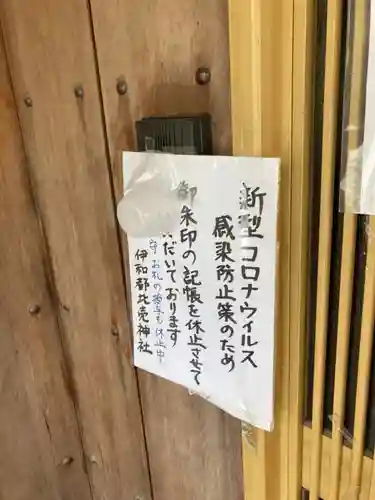 新型コロナウィルス
感染防止策のため
御朱印の記帳を休止させて
いただいております
お札の授与も休止中
伊和都比売神社